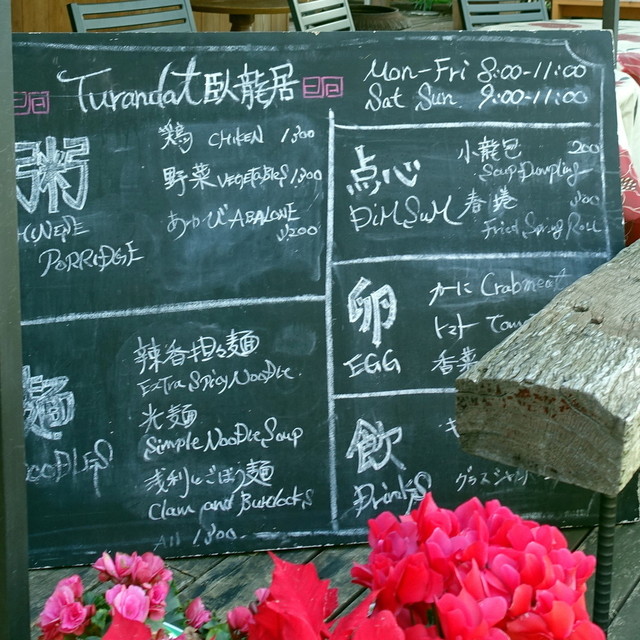 Turandot 臥龍居
Mon-Fri 8:00-11:00
Sat Sun 9:00-11:00
粥
HINEPE
PORRIDGE
鶏 CHIKEN 1,300
野菜 VEGETABLES 1,300
あわび ABALONE
点心
DIMSUM
小龍包 200
Soup Dumpling
春捲
Fried Spring Roll
卵
EGG
かに Crabmeat
トマト
香菜
麺
OODLES
辣香担々麺
Extra Spicy Noodle
光麺
Simple Noodle Soup
浅利とごぼう麺
Clam and Burdocks
All 1,300-
飲
Drinks